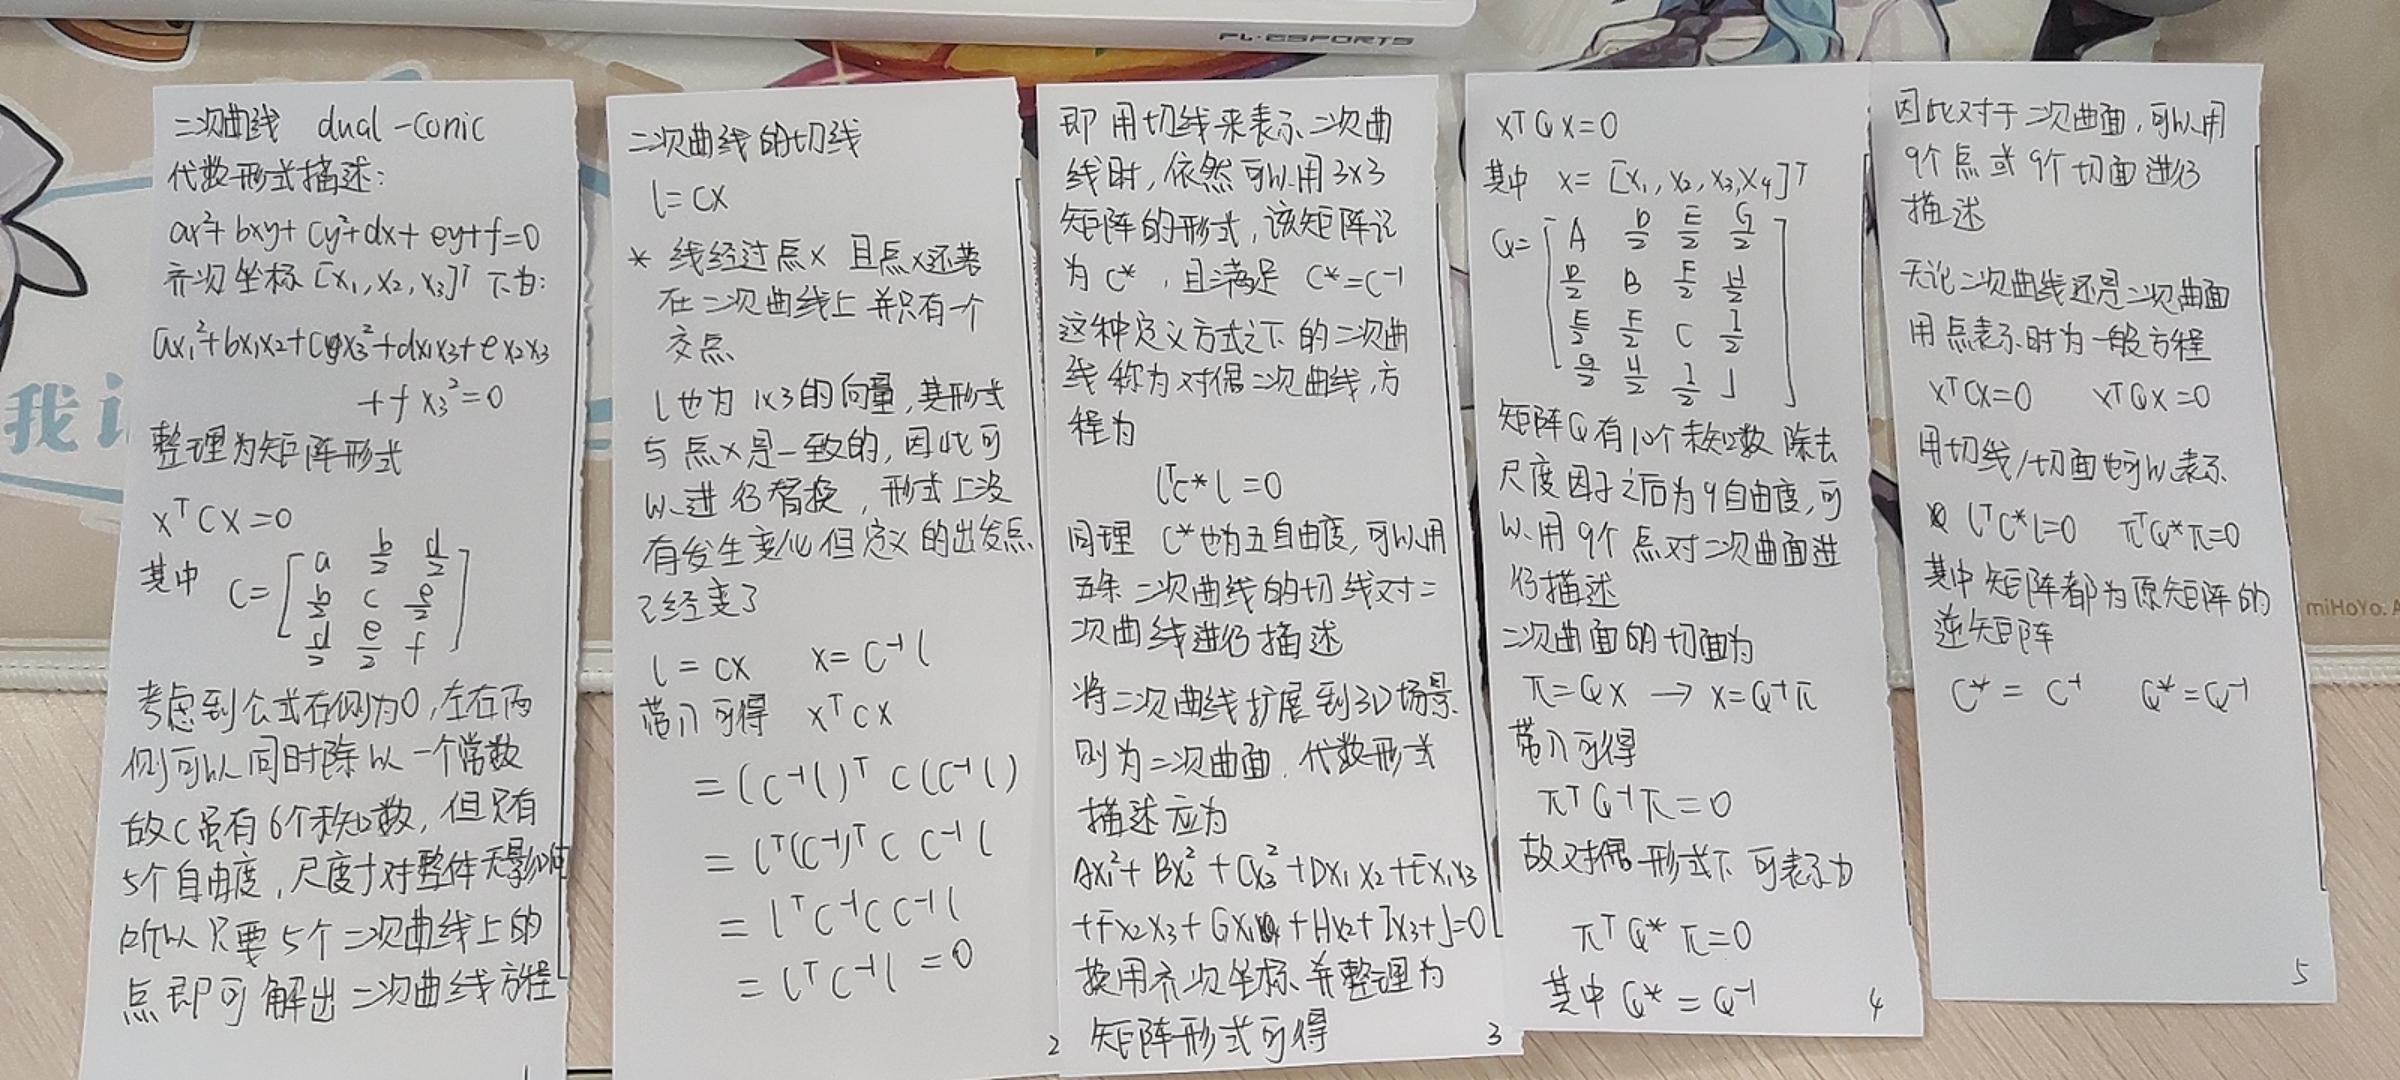 FL·ESPORTS
我
miHoYo. A
二次曲线 dual-conic
代数形式描述:
ax²+bxy+cy²+dx+ey+f=0
齐次坐标 [x₁,x₂,x₃]ᵀ 下为:
ax₁²+bx₁x₂+cx₃²+dx₁x₃+ex₂x₃
+fx₃²=0
整理为矩阵形式
xᵀCx=0
其中 C=[a b/2 d/2
b/2 c e/2
d/2 e/2 f]
考虑到公式右侧为0,左右两
侧可以同时除以一个常数
故C虽有6个未知数,但只有
5个自由度,尺度才对整体无影响
所以只要5个二次曲线上的
点即可解出二次曲线方程
1
二次曲线的切线
l=Cx
* 线经过点x 且点x还落
在二次曲线上并只有一个
交点
l也为1x3的向量,其形式
与点x是一致的,因此可
以进行替换,形式上没
有发生变化但定义的出发点
已经变了
l=Cx x=C⁻¹l
带入可得 xᵀCx
=(C⁻¹l)ᵀC(C⁻¹l)
=lᵀ(C⁻¹)ᵀC C⁻¹l
=lᵀC⁻¹CC⁻¹l
=lᵀC⁻¹l=0
2
即用切线来表示二次曲
线时,依然可以用3x3
矩阵的形式,该矩阵记
为C*,且满足 C*=C⁻¹
这种定义方式之下的二次曲
线称为对偶二次曲线,方
程为
lᵀC*l=0
同理 C*也为五自由度,可以用
五条二次曲线的切线对二
次曲线进行描述
将二次曲线扩展到3D场景
则为二次曲面,代数形式
描述应为
Ax₁²+Bx₂²+Cx₃²+Dx₁x₂+Ex₁x₃
+Fx₂x₃+Gx₁+Hx₂+Ix₃+J=0
换用齐次坐标并整理为
矩阵形式可得
3
xᵀQx=0
其中 x=[x₁,x₂,x₃,x₄]ᵀ
Q=[A D/2 E/2 G/2
D/2 B F/2 H/2
E/2 F/2 C I/2
G/2 H/2 I/2 J]
矩阵Q有10个未知数 除去
尺度因子之后为9自由度,可
以用9个点对二次曲面进
行描述
二次曲面的切面为
π=Qx → x=Q⁻¹π
带入可得
πᵀQ⁻¹π=0
故对偶形式下可表示为
πᵀQ*π=0
其中Q*=Q⁻¹
4
因此对于二次曲面,可以用
9个点或9个切面进行
描述
无论二次曲线还是二次曲面
用点表示时为一般方程
xᵀCx=0 xᵀQx=0
用切线/切面也可以表示
lᵀC*l=0 πᵀQ*π=0
其中矩阵都为原矩阵的
逆矩阵
C*=C⁻¹ Q*=Q⁻¹
5